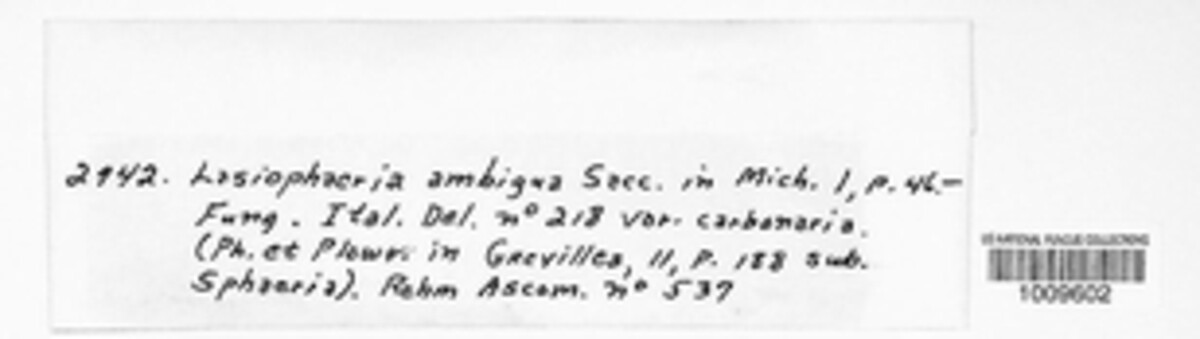 2942. Lasiophaeria ambigua Sacc. in Mich. 1, p. 46.—
Fung. Ital. Del. nº 218 var. carbonaria.
(Ph. et Plowr. in Grevillea, 11, p. 188 sub.
Sphaeria). Rehm Ascom. nº 537
US NATIONAL FUNGUS COLLECTIONS
1009602